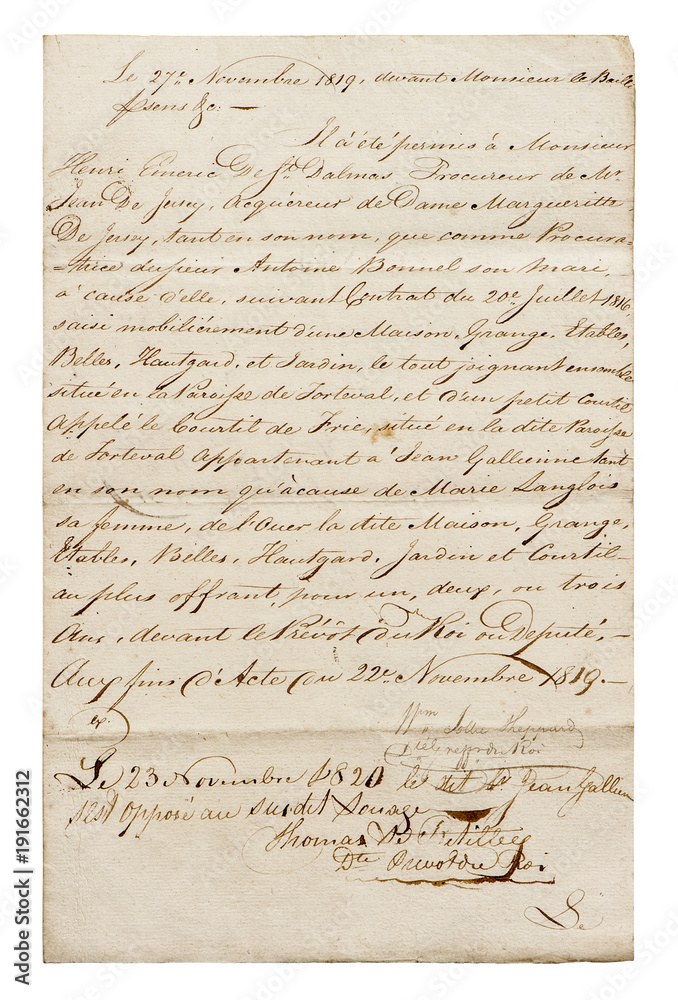 Le 27e. Novembre 1819, devant Monsieur le Bailli
psens &c: —
Il a été permis à Monsieur
Henri Emeric De St. Dalmas Procureur de Mr.
Jean De Jersey, acquéreur de Dame Margueritte
De Jersey, tant en son nom, que comme Procura-
=trice du sieur Antoine Bonnel son mari,
à cause d'elle, suivant Contrat du 20e. Juillet 1816,
saisi mobiliérement d'une Maison, Grange, Etables,
Belles, Hautgard, et Jardin, le tout joignant ensemble
situé en la Paroisse de Torteval, et d'un petit Courtil
appelé le Courtil de Fric, situé en la dite Paroisse
de Torteval appartenant à Jean Gallienne tant
en son nom qu'à cause de Marie Langlois
sa femme, de l'Ouer la dite Maison, Grange,
Etables, Belles, Hautgard, Jardin et Courtil
au plus offrant, pour un, deux, ou trois
Ans, devant le Prévôt du Roi ou Deputé, —
Aux fins d'Acte du 22e. Novembre 1819. —
ex.
Sheppard
Roi
Le 23 Novembre 1820 le dit Sr Jean Gallien
s'est opposé au susdit Louage
Thomas De
Dte Prevot du Roi
Le
Adobe Stock | #191662312